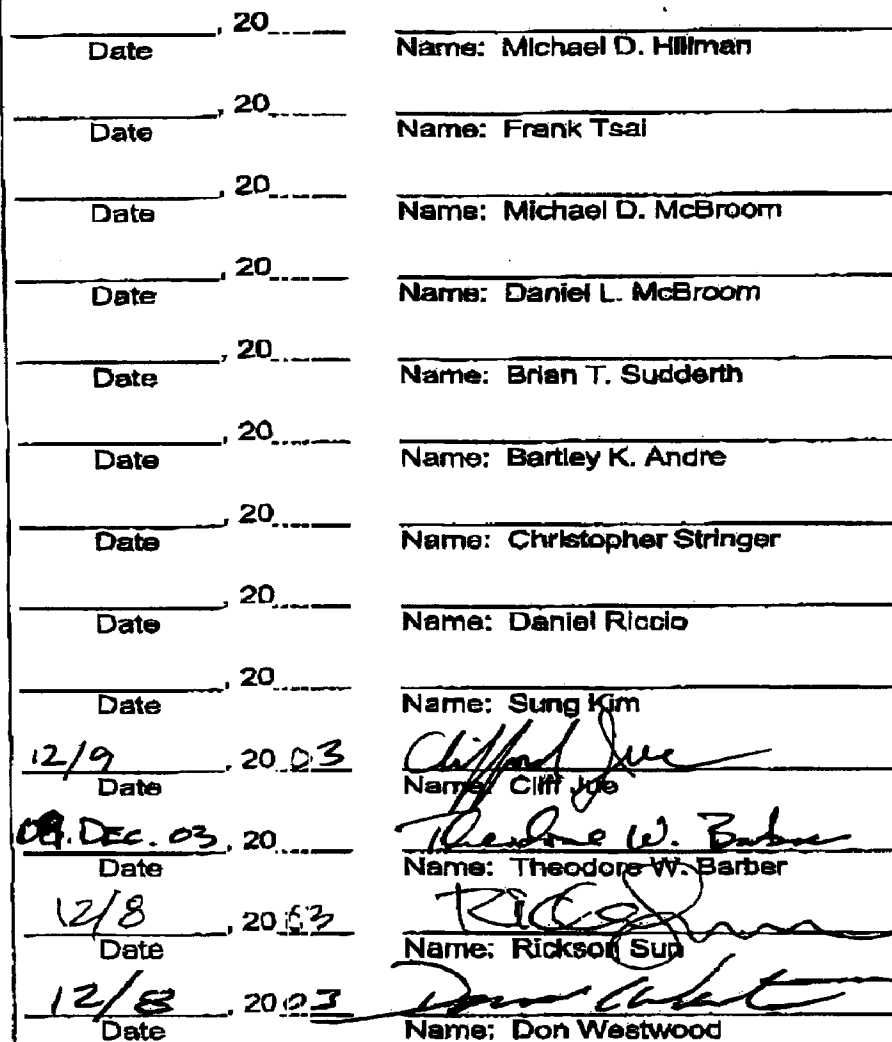 , 20
Date Name: Michael D. Hillman
, 20
Date Name: Frank Tsai
, 20
Date Name: Michael D. McBroom
, 20
Date Name: Daniel L. McBroom
, 20
Date Name: Brian T. Sudderth
, 20
Date Name: Bartley K. Andre
, 20
Date Name: Christopher Stringer
, 20
Date Name: Daniel Riccio
, 20
Date Name: Sung Kim
12/9 , 20 03 Clifford Jue
Date Name: Cliff Jue
DEC. 03, 20 Theodore W. Barber
Date Name: Theodore W. Barber
12/8 , 20 03
Date Name: Rickson Sun
12/8 , 20 03
Date Name: Don Westwood